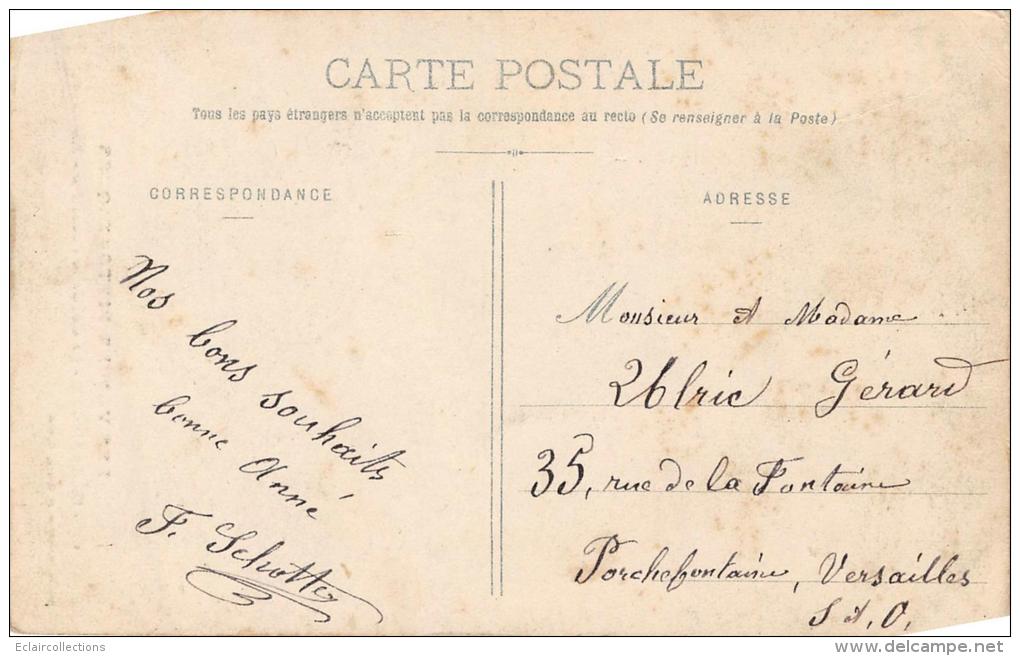 CARTE POSTALE
Tous les pays étrangers n'acceptent pas la correspondance au recto (Se renseigner à la Poste)
CORRESPONDANCE
ADRESSE
Nos bons souhaits
bonne Anné
F. Schott
Monsieur et Madame
Ulric Gérard
35, rue de la Fontaine
Porchefontaine, Versailles
S et, O,
Eclaircollections
www.delcampe.net